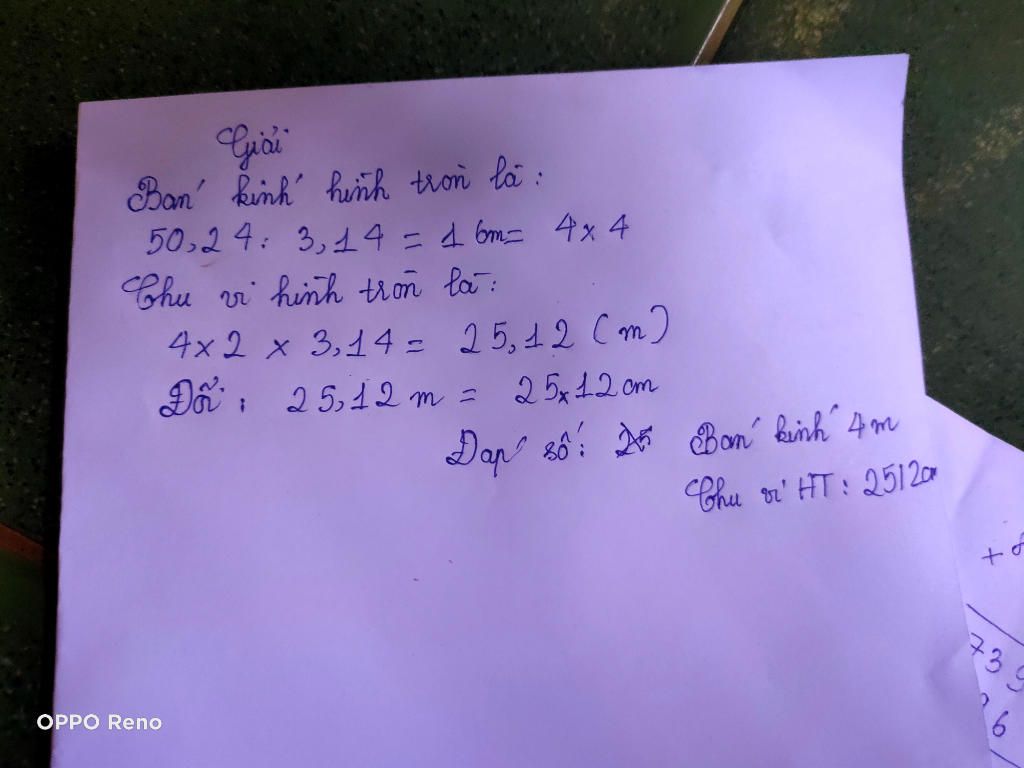 Giải
Bán kính hình tròn là:
50,24 : 3,14 = 16m = 4 x 4
Chu vi hình tròn là:
4 x 2 x 3,14 = 25,12 (m)
Đổi : 25,12 m = 25x12 cm
Đáp số: Bán kính 4 m
Chu vi HT : 2512cm
+
73
6
OPPO Reno